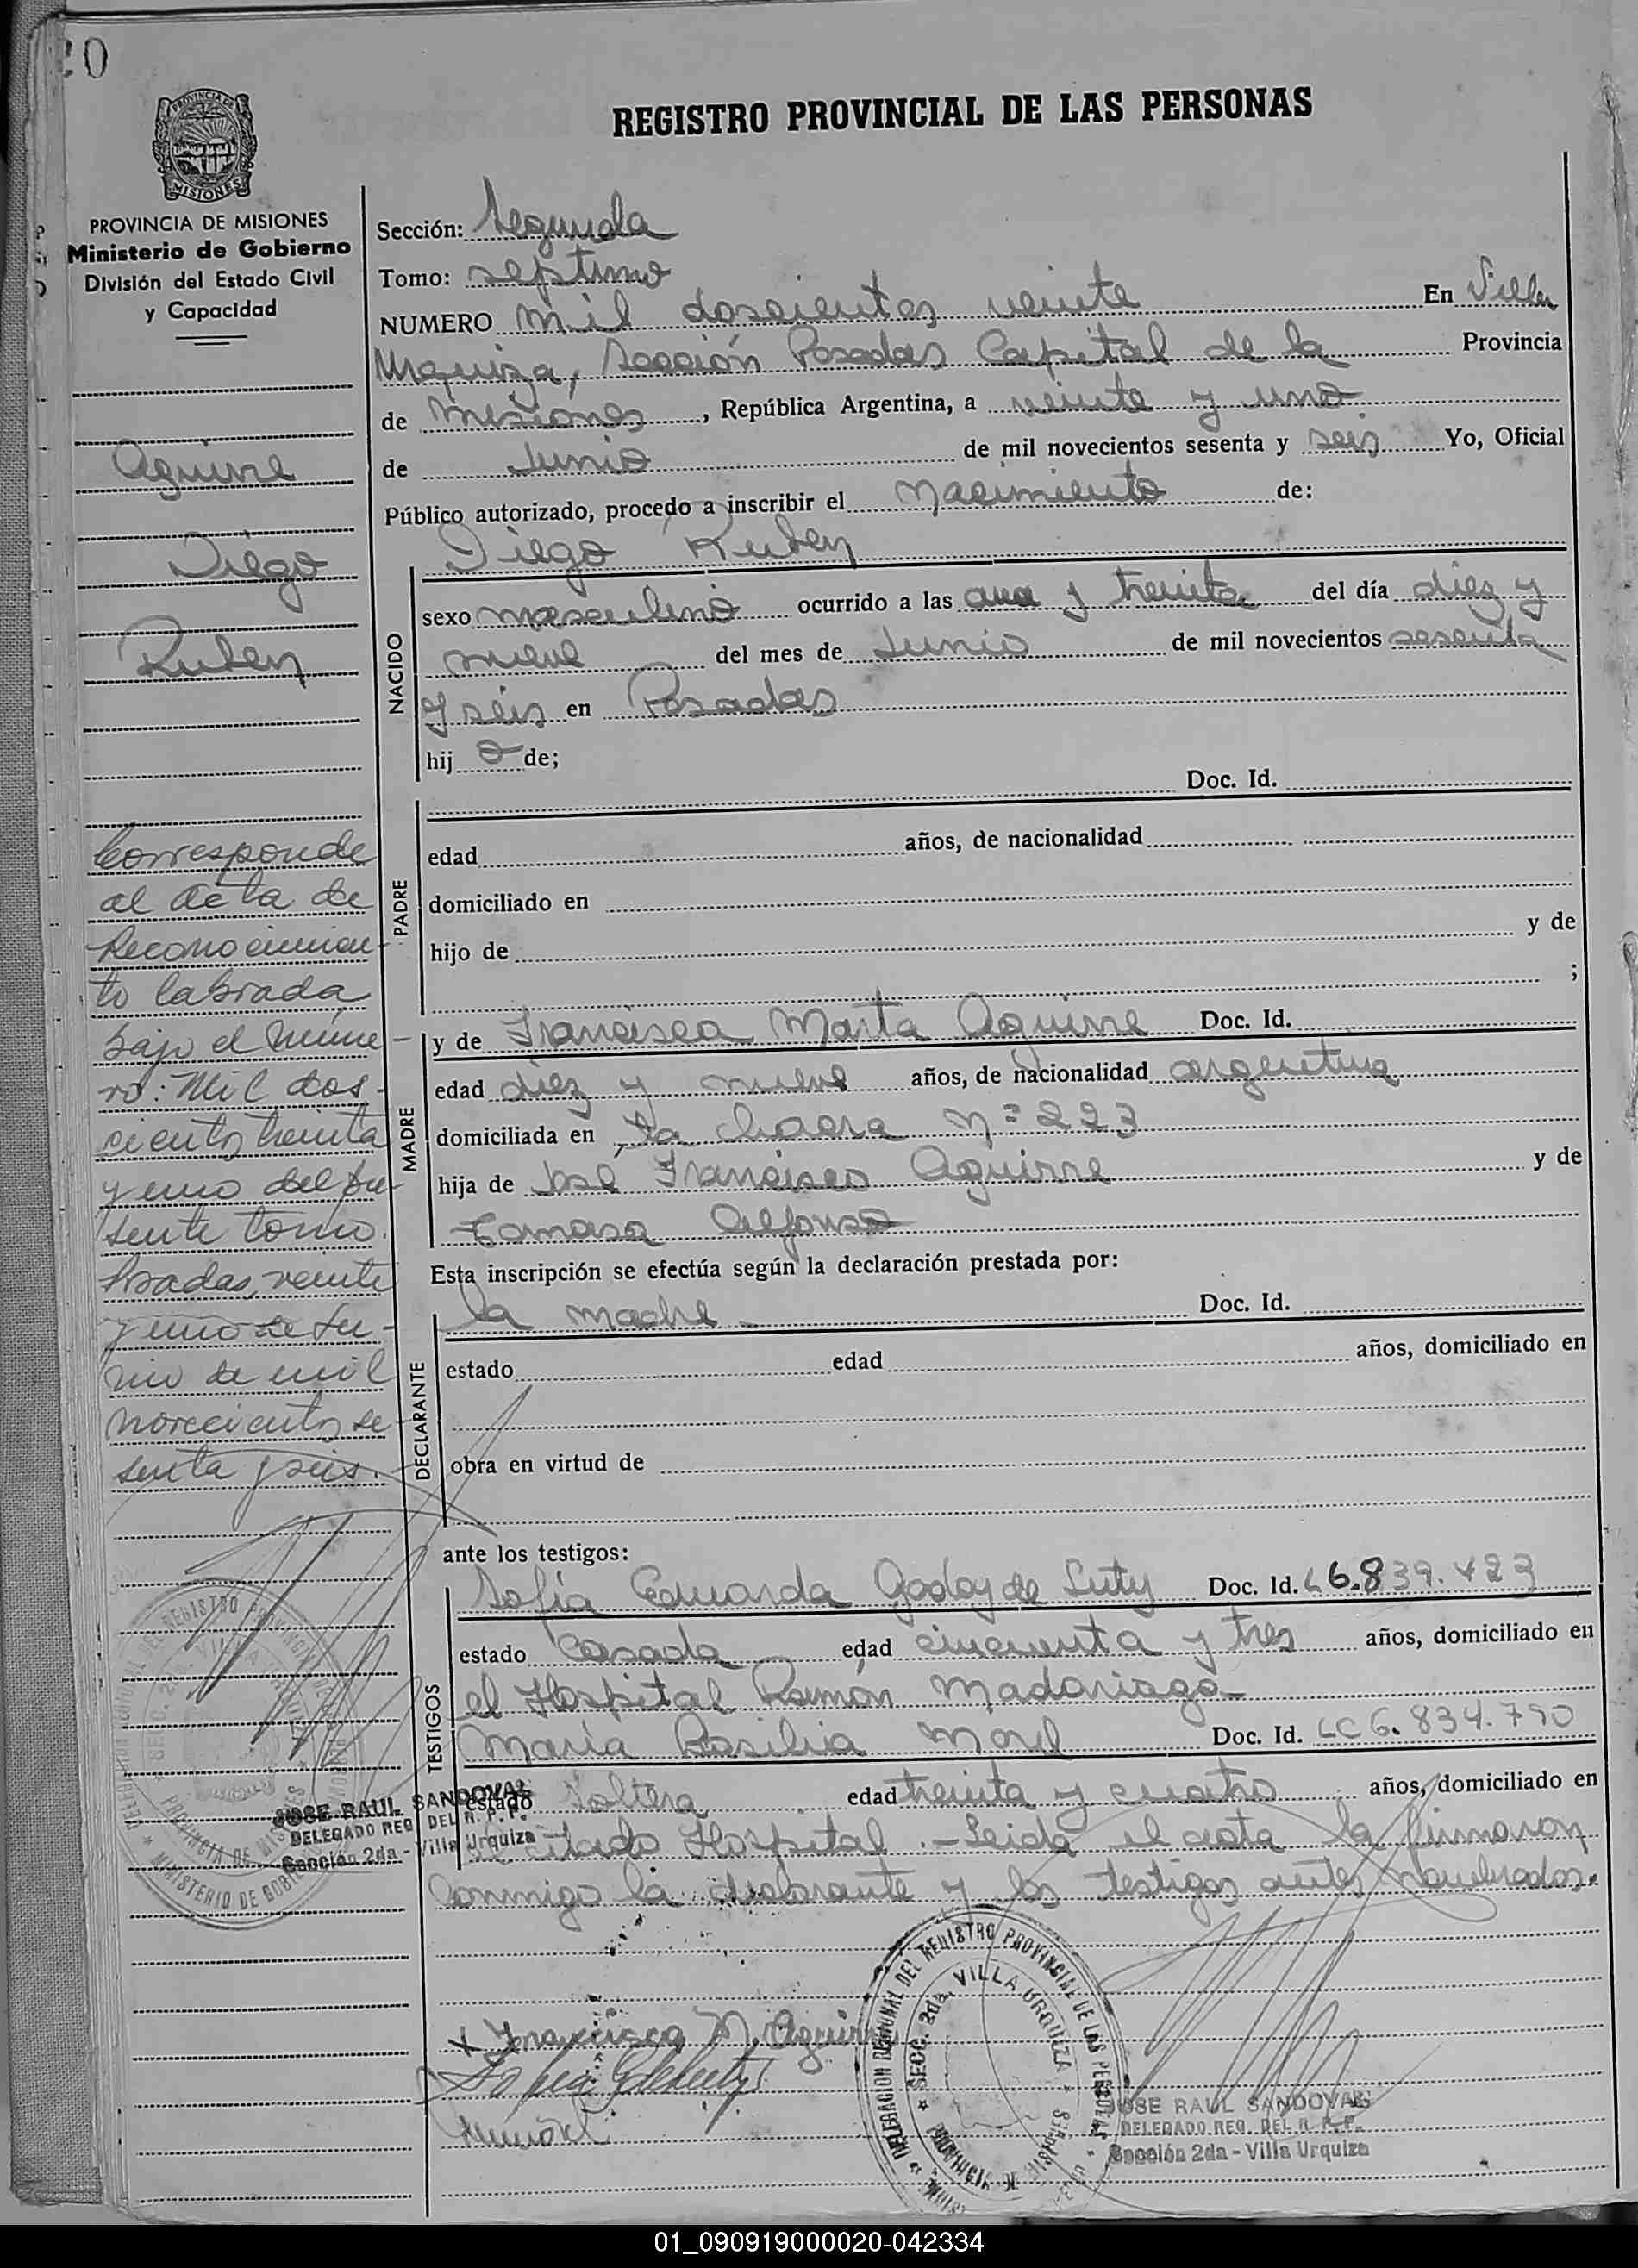 20
REGISTRO PROVINCIAL DE LAS PERSONAS
MISIONES
PROVINCIA DE MISIONES
Ministerio de Gobierno
División del Estado Civil
y Capacidad
Aguirre
Diego
Ruben
Corresponde
al acta de
Reconocimien-
to labrada
bajo el núme-
ro: Mil dos-
cientos treinta
y uno del pre-
sente tomo.
Posadas, veinte
y uno de Ju-
nio de mil
novecientos se-
senta y seis.
JOSE RAUL SANDOVAL
DELEGADO REG DEL R. P. P.
Sección 2da - Villa Urquiza
Sección: Segunda
Tomo: septimo
NUMERO mil doscientos veinte En Villa
Urquiza, Sección Posadas Capital de la Provincia
de Misiones, República Argentina, a veinte y uno
de Junio de mil novecientos sesenta y seis Yo, Oficial
Público autorizado, procedo a inscribir el Nacimiento de:
Diego Ruben
NACIDO
sexo masculino ocurrido a las una y treinta del día diez y
nueve del mes de Junio de mil novecientos sesenta
y seis en Posadas
hij o de;
PADRE
Doc. Id.
edad años, de nacionalidad
domiciliado en
hijo de y de
;
MADRE
y de Francisca Marta Aguirre Doc. Id.
edad diez y nueve años, de nacionalidad argentina
domiciliada en la chacra Nº 223
hija de José Francisco Aguirre y de
Tomasa Alfonso
Esta inscripción se efectúa según la declaración prestada por:
DECLARANTE
la madre Doc. Id.
estado edad años, domiciliado en
obra en virtud de
ante los testigos:
TESTIGOS
Sofía Eduarda Godoy de Luty Doc. Id. L 6.839.423
estado Casada edad cincuenta y tres años, domiciliado en
el Hospital Ramón Madariaga
María Basilia Morel Doc. Id. LC 6.834.790
estado Soltera edad treinta y cuatro años, domiciliado en
citado Hospital.- Leida el acta la firmaron
conmigo la declarante y los testigos antes nombrados.
x Francisca M. Aguirre
DELEGACION REGIONAL DEL REGISTRO PROVINCIAL DE LAS PERSONAS
SECC. 2da. VILLA URQUIZA
JOSE RAUL SANDOVAL
DELEGADO REG. DEL R. P. P.
Sección 2da - Villa Urquiza
01_090919000020-042334